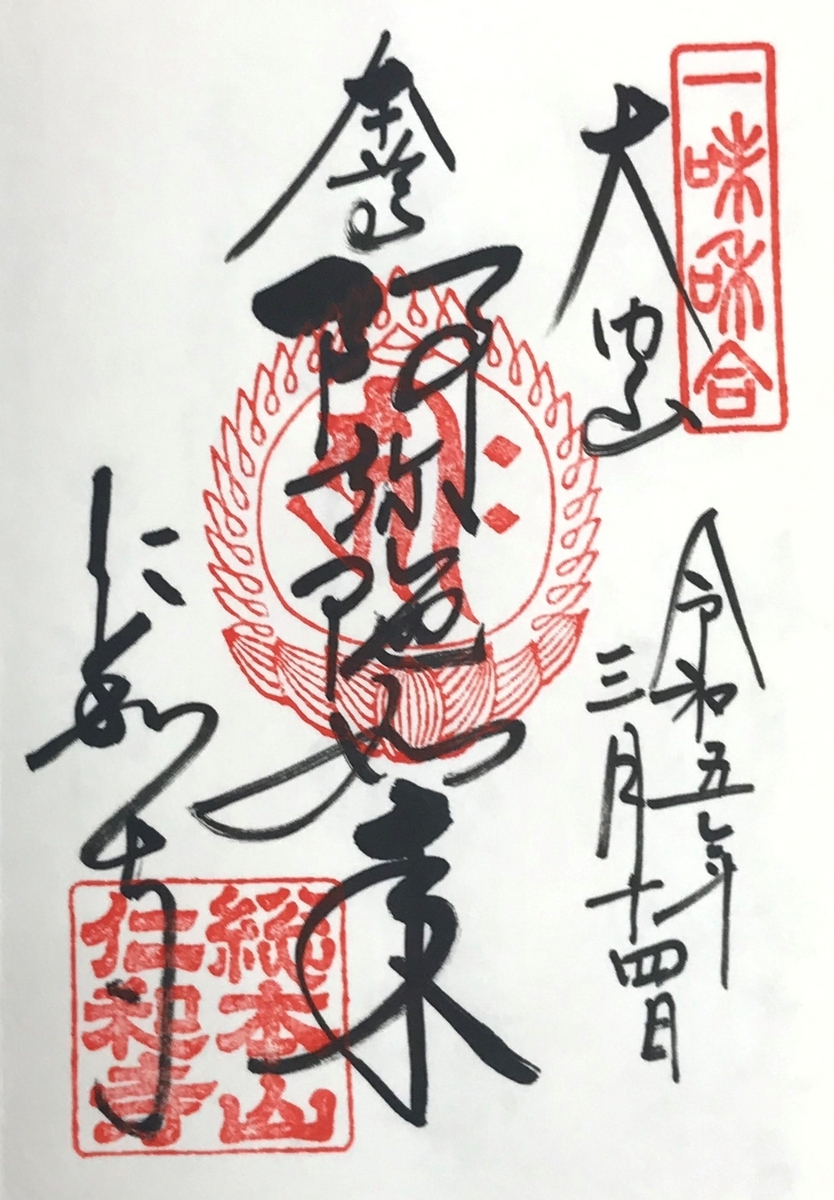 一味和合
大内山
令和五年
三月十四日
本尊
阿弥陀如来
仁和寺
総本山
仁和寺